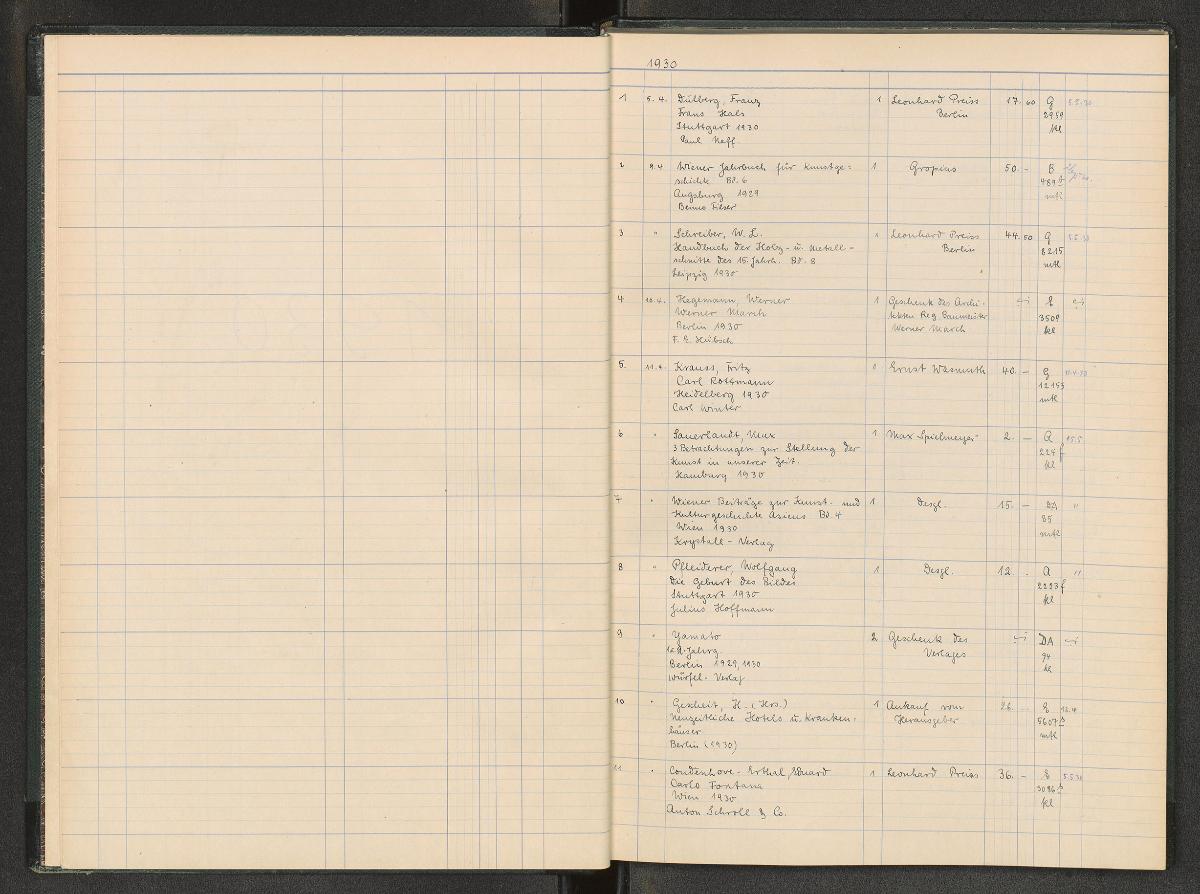 1930
1 5.4. Dülberg, Franz 1 Leonhard Preiss 17.60 G 5.5.30
Frans Hals Berlin 2959
Stuttgart 1930 kl
Paul Neff
2 9.4 Wiener Jahrbuch für Kunstge= 1 Gropius 50.- B
schichte Bd. 6 489
Augsburg 1929 mtl
Benno Filser
3 " Schreiber, W. L. 1 Leonhard Preiss 44.50 G 5.5.30
Handbuch der Holz- u. Metall- Berlin 8215
schnitte des 15. Jahrh. Bd. 8 mtl
Leipzig 1930
4 10.4. Hegemann, Werner 1 Geschenk des Archi- E
Werner March tekten Reg. Baumeister 3509
Berlin 1930 Werner March kl
F. E. Hübsch
5. 11.4. Krauss, Fritz 1 Ernst Wasmuth 40.- G
Carl Rottmann 12153
Heidelberg 1930 mtl
Carl Winter
6 " Sauerlandt, Max 1 Max "Spielmeyer" 2.- A 15.5
3 Betrachtungen zur Stellung der 224 f
Kunst in unserer Zeit. kl
Hamburg 1930
7 " Wiener Beiträge zur Kunst- und 1 desgl. 15.- DA "
Kulturgeschichte Asiens Bd. 4 35
Wien 1930 mtl
Krystall-Verlag
8 " Pfleiderer, Wolfgang 1 Desgl. 12.- A "
Die Geburt des Bildes 2223 f
Stuttgart 1930 kl
Julius Hoffmann
9 " Yamato 2 Geschenk des DA
1.2. Jahrg. Verlages 94
Berlin 1929, 1930 kl
Würfel-Verlag
10 " Gescheit, H. (Hrs.) 1 Ankauf vom 26.- E 12.4
Neuzeitliche Hotels u. Kranken- Herausgeber 5607
häuser mtl
Berlin (1930)
11 " Coudenhove-Erthal, Eduard 1 Leonhard Preiss 36.- E 5.5.30
Carlo Fontana 3086
Wien 1930 kl
Anton Schroll & Co.